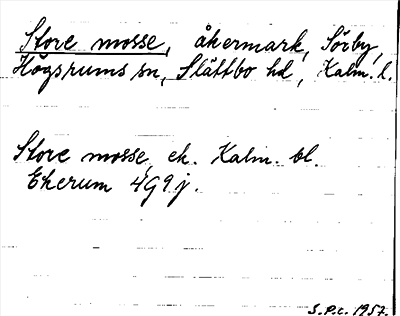 Store mosse, åkermark, Sörby,
Högsrums sn, Slättbo hd, Kalm. l.
Store mosse, ek. Kalm. bl.
Ekerum 4G9j.
S.P.C. 1957.